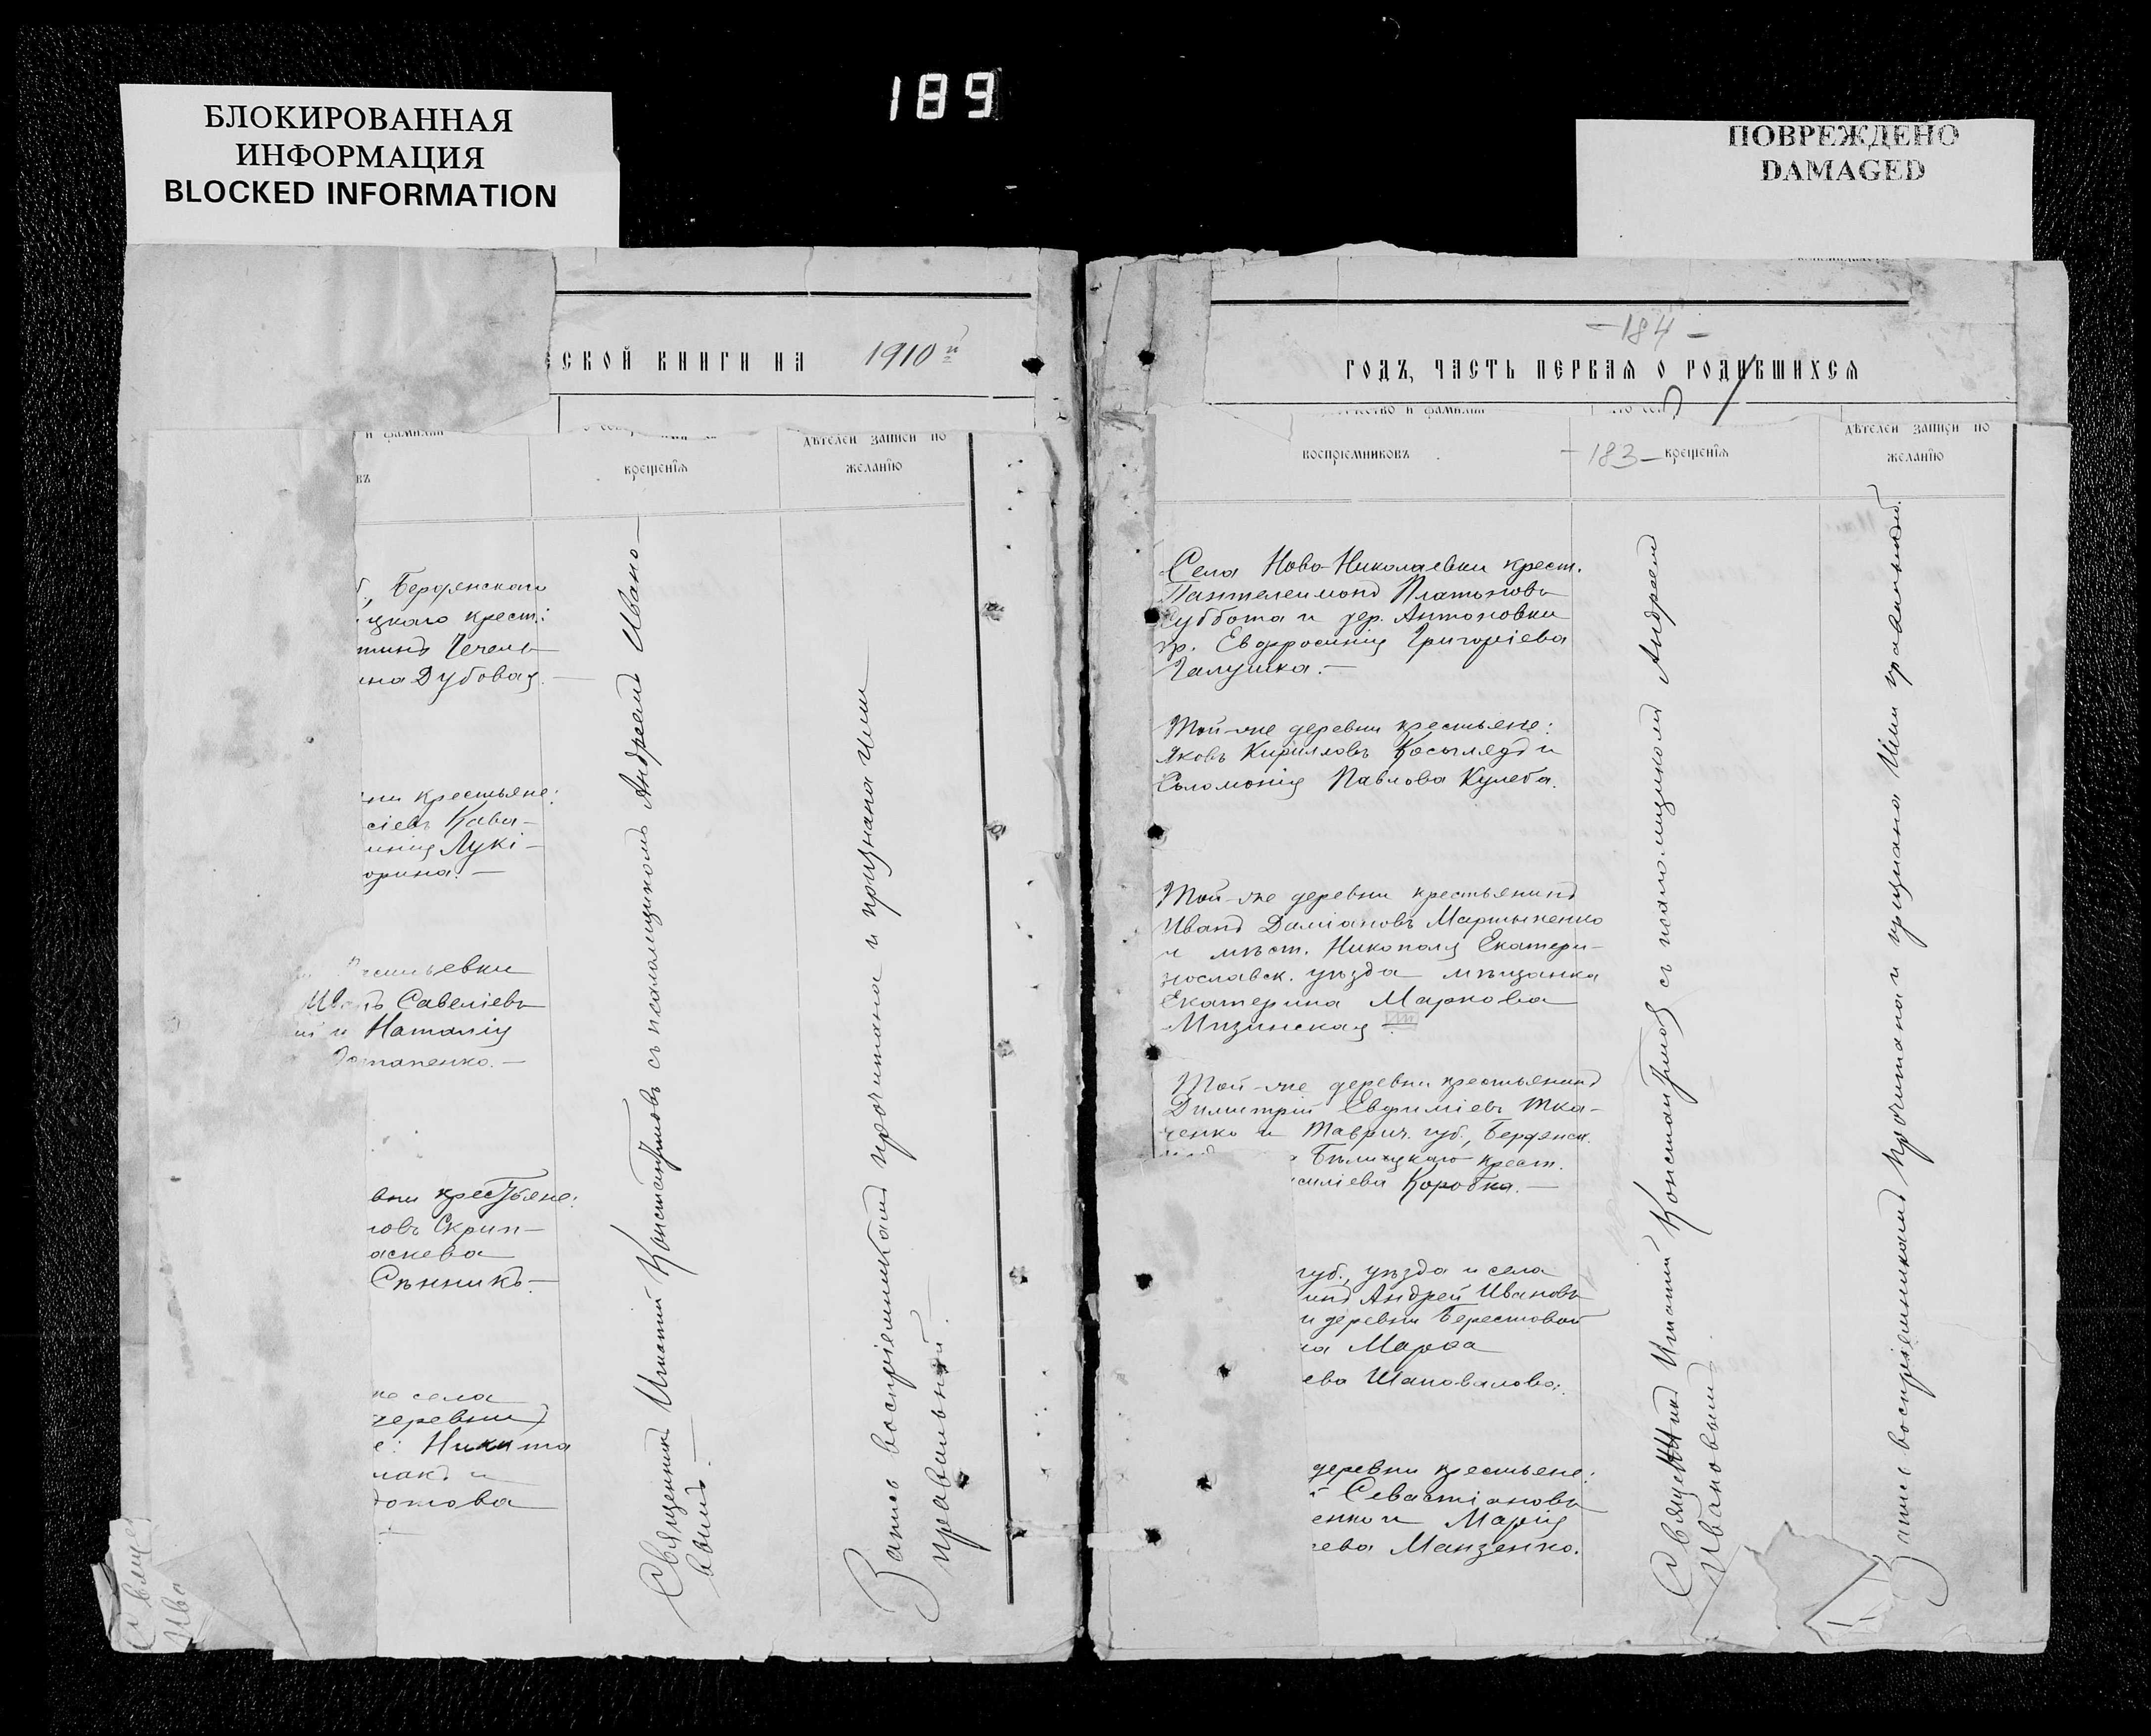 189
БЛОКИРОВАННАЯ
ИНФОРМАЦИЯ
BLOCKED INFORMATION
ПОВРЕЖДЕНО
DAMAGED
ской книги на 1910й
и фамилія
въ
крещенія
дѣтелей записи по
желанію
Бердянскаго
цкаго крест:
тинъ Чечель
ина Дубовая. —
ни крестьяне:
сіевъ Кава-
Лукі-
орина. —
евки
Савеліевъ
и Наталія
тапенко. —
вни крестьяне:
новъ Скрип-
аскева
Сѣнникъ. —
не села
деревни
е: Никита
макъ и
дотова
Священникъ Игнатій Константиновъ съ псаломщикомъ Андреемъ Ивано-
вымъ. —
Запись воспріемникамъ прочитана и признана ими
правильной. —
Свяще
Ива
-184-
годъ, часть первая о родившихся
воспріемниковъ
-183-
крещенія
дѣтелей записи по
желанію
Села Ново-Николаевки крест.
Пантелеимонъ Платоновъ
Суббота и дер. Антоновки
кр. Евфросинія Григоріева
Галушка. —
Той-же деревни крестьяне:
Яковъ Кирилловъ Косоглядъ и
Соломонія Павлова Кулеба.
Той-же деревни крестьянинъ
Иванъ Даміановъ Мартыненко
и мѣст. Никополя Екатери-
нославск. уѣзда мѣщанка
Екатерина Маркова
Мизинская
Той-же деревни крестьянинъ
Димитрій Евфиміевъ Тка-
ченко и Таврич. губ., Бердянск.
крест.
силіева Коробка. —
губ., уѣзда и села
инъ Андрей Ивановъ
и деревни Берестовой
на Марѳа
ева Шаповалова.
деревни крестьяне:
й Севастіановъ
енко и Марія
ева Манзенко.
Священникъ Игнатій Константиновъ съ псаломщикомъ Андреемъ
Ивановымъ.
Запись воспріемникамъ прочитана и признана ими правильной.